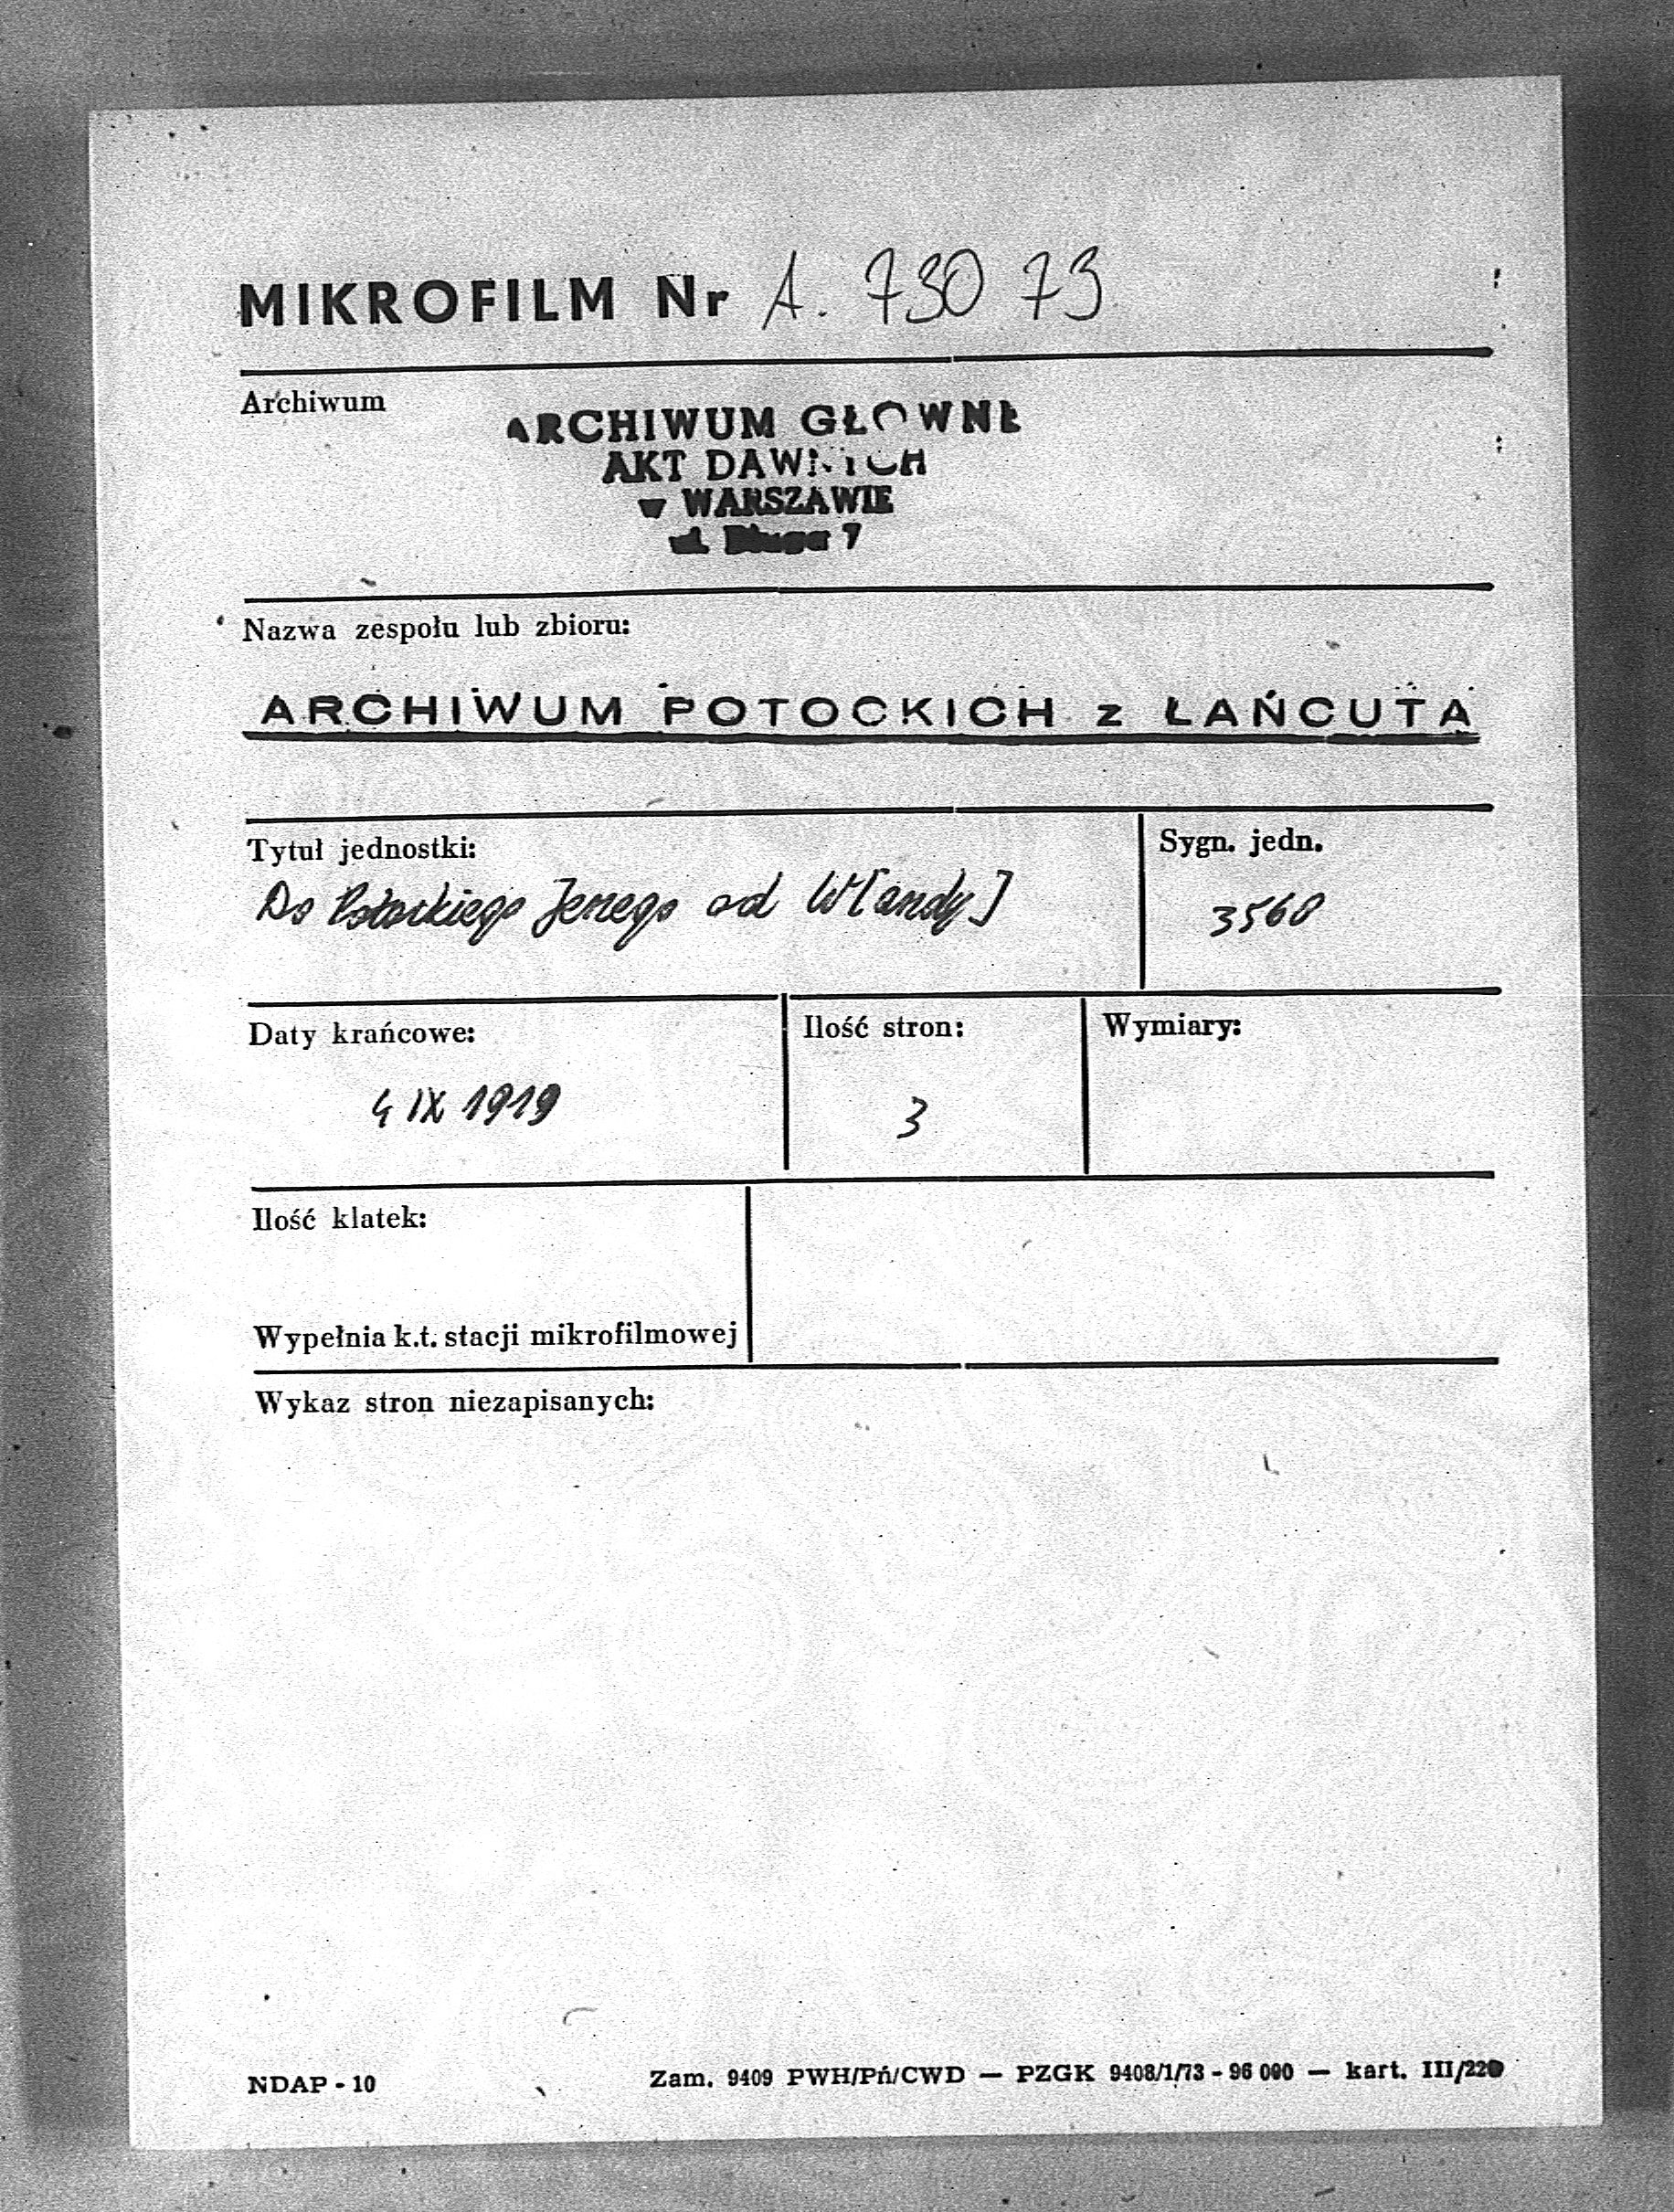 MIKROFILM Nr A. 730 73
Archiwum
ARCHIWUM GŁÓWNE
AKT DAWNYCH
w WARSZAWIE
ul. Długa 7
Nazwa zespołu lub zbioru:
ARCHIWUM POTOCKICH z ŁAŃCUTA
Tytuł jednostki:
Sygn. jedn.
Do Potockiego Jerzego od W[andy]
3560
Daty krańcowe:
Ilość stron:
Wymiary:
4 IX 1919
3
Ilość klatek:
Wypełnia k.t. stacji mikrofilmowej
Wykaz stron niezapisanych:
NDAP - 10
Zam. 9409 PWH/Pń/CWD — PZGK 9408/1/73 - 96 000 — kart. III/220